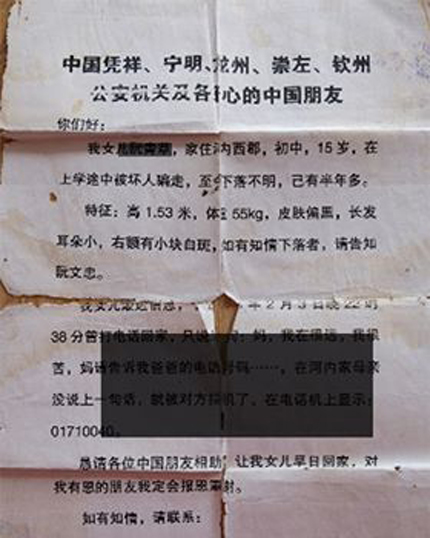 中国凭祥、宁明、龙州、崇左、钦州
公安机关及各 心的中国朋友
你们好：
我女儿阮 ，家住河内西郡，初中，15岁，在
上学途中被坏人骗走，至今下落不明，己有半年多。
特征：高1.53米，体 55kg，皮肤偏黑，长发
耳朵小，右额有小块白斑，如有知情下落者，请告知
阮文忠。
我女儿 信息， 年2月3日晚22时
38分曾打电话回家，只说 ：妈，我在很远，我很
苦，妈请告诉我爸爸的电话号码……，在河内家母亲
没说上一句话，就被对方 机了。在电话机上显示：
01710040。
恳请各位中国朋友相助，让我女儿早日回家，对
我有恩的朋友我定会报恩 谢。
如有知情，请联系：